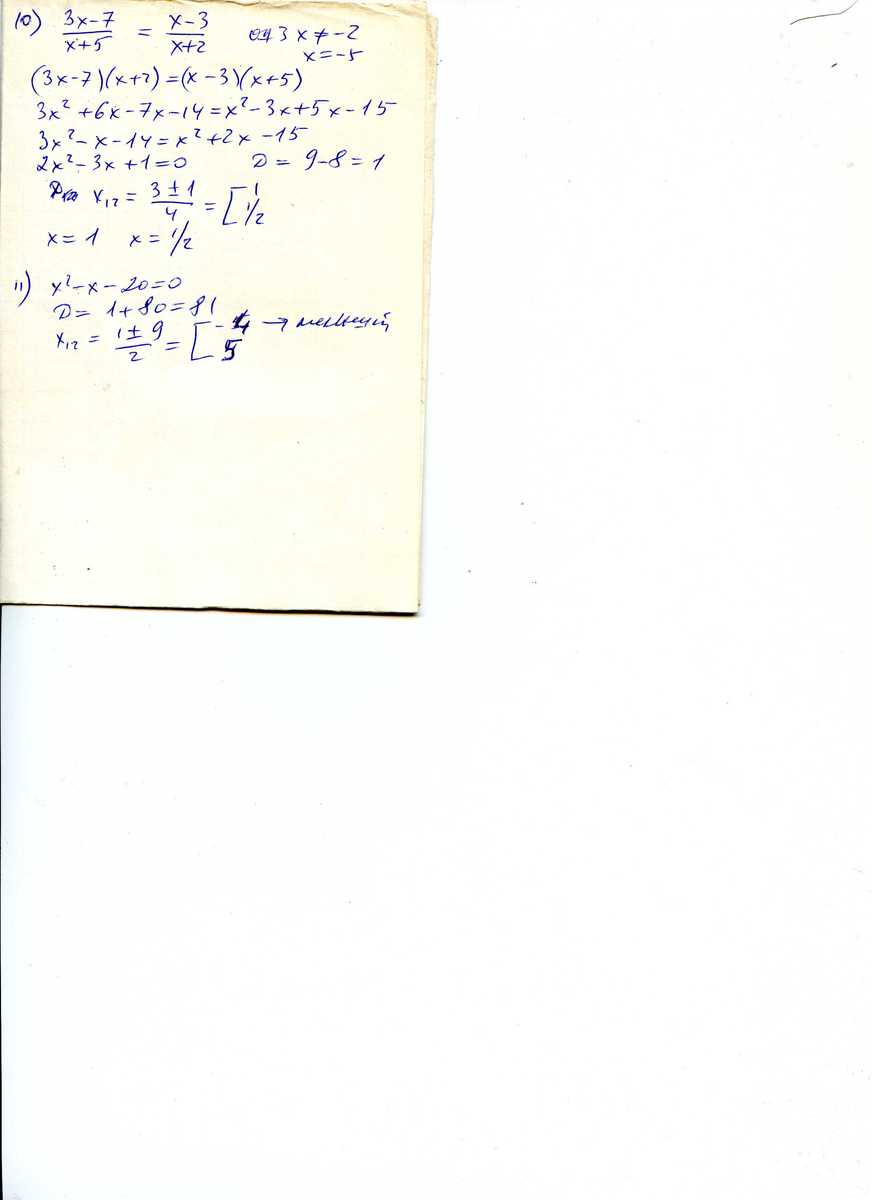 10) (3x-7)/(x+5) = (x-3)/(x+2) ОДЗ x ≠ -2
x = -5
(3x-7)(x+2)=(x-3)(x+5)
3x²+6x-7x-14=x²-3x+5x-15
3x²-x-14=x²+2x-15
2x²-3x+1=0 D = 9-8=1
x₁,₂ = (3±1)/4 = [1 1/2
x=1 x=1/2
11) x²-x-20=0
D= 1+80=81
x₁,₂ = (1±9)/2 = [-4 → меньший
5